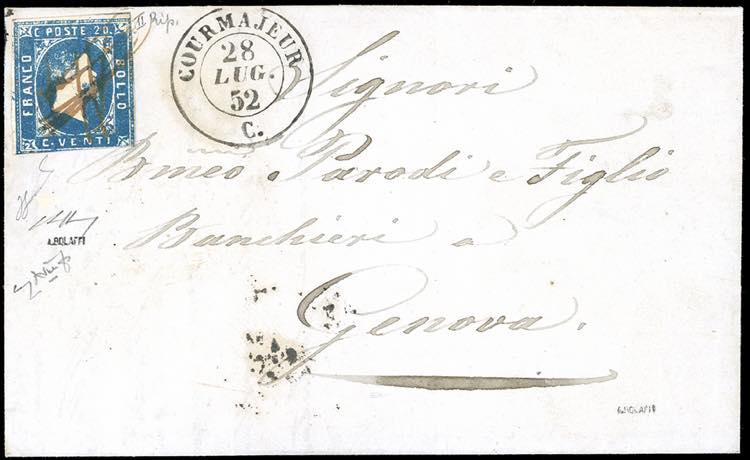 C. POSTE 20.
FRANCO
BOLLO
C. VENTI
II Rip.
COURMAJEUR
28
LUG.
52
C.
Signori
Romeo Parodi e Figlio
Banchieri a
Genova.
A.BOLAFFI
A.BOLAFFI